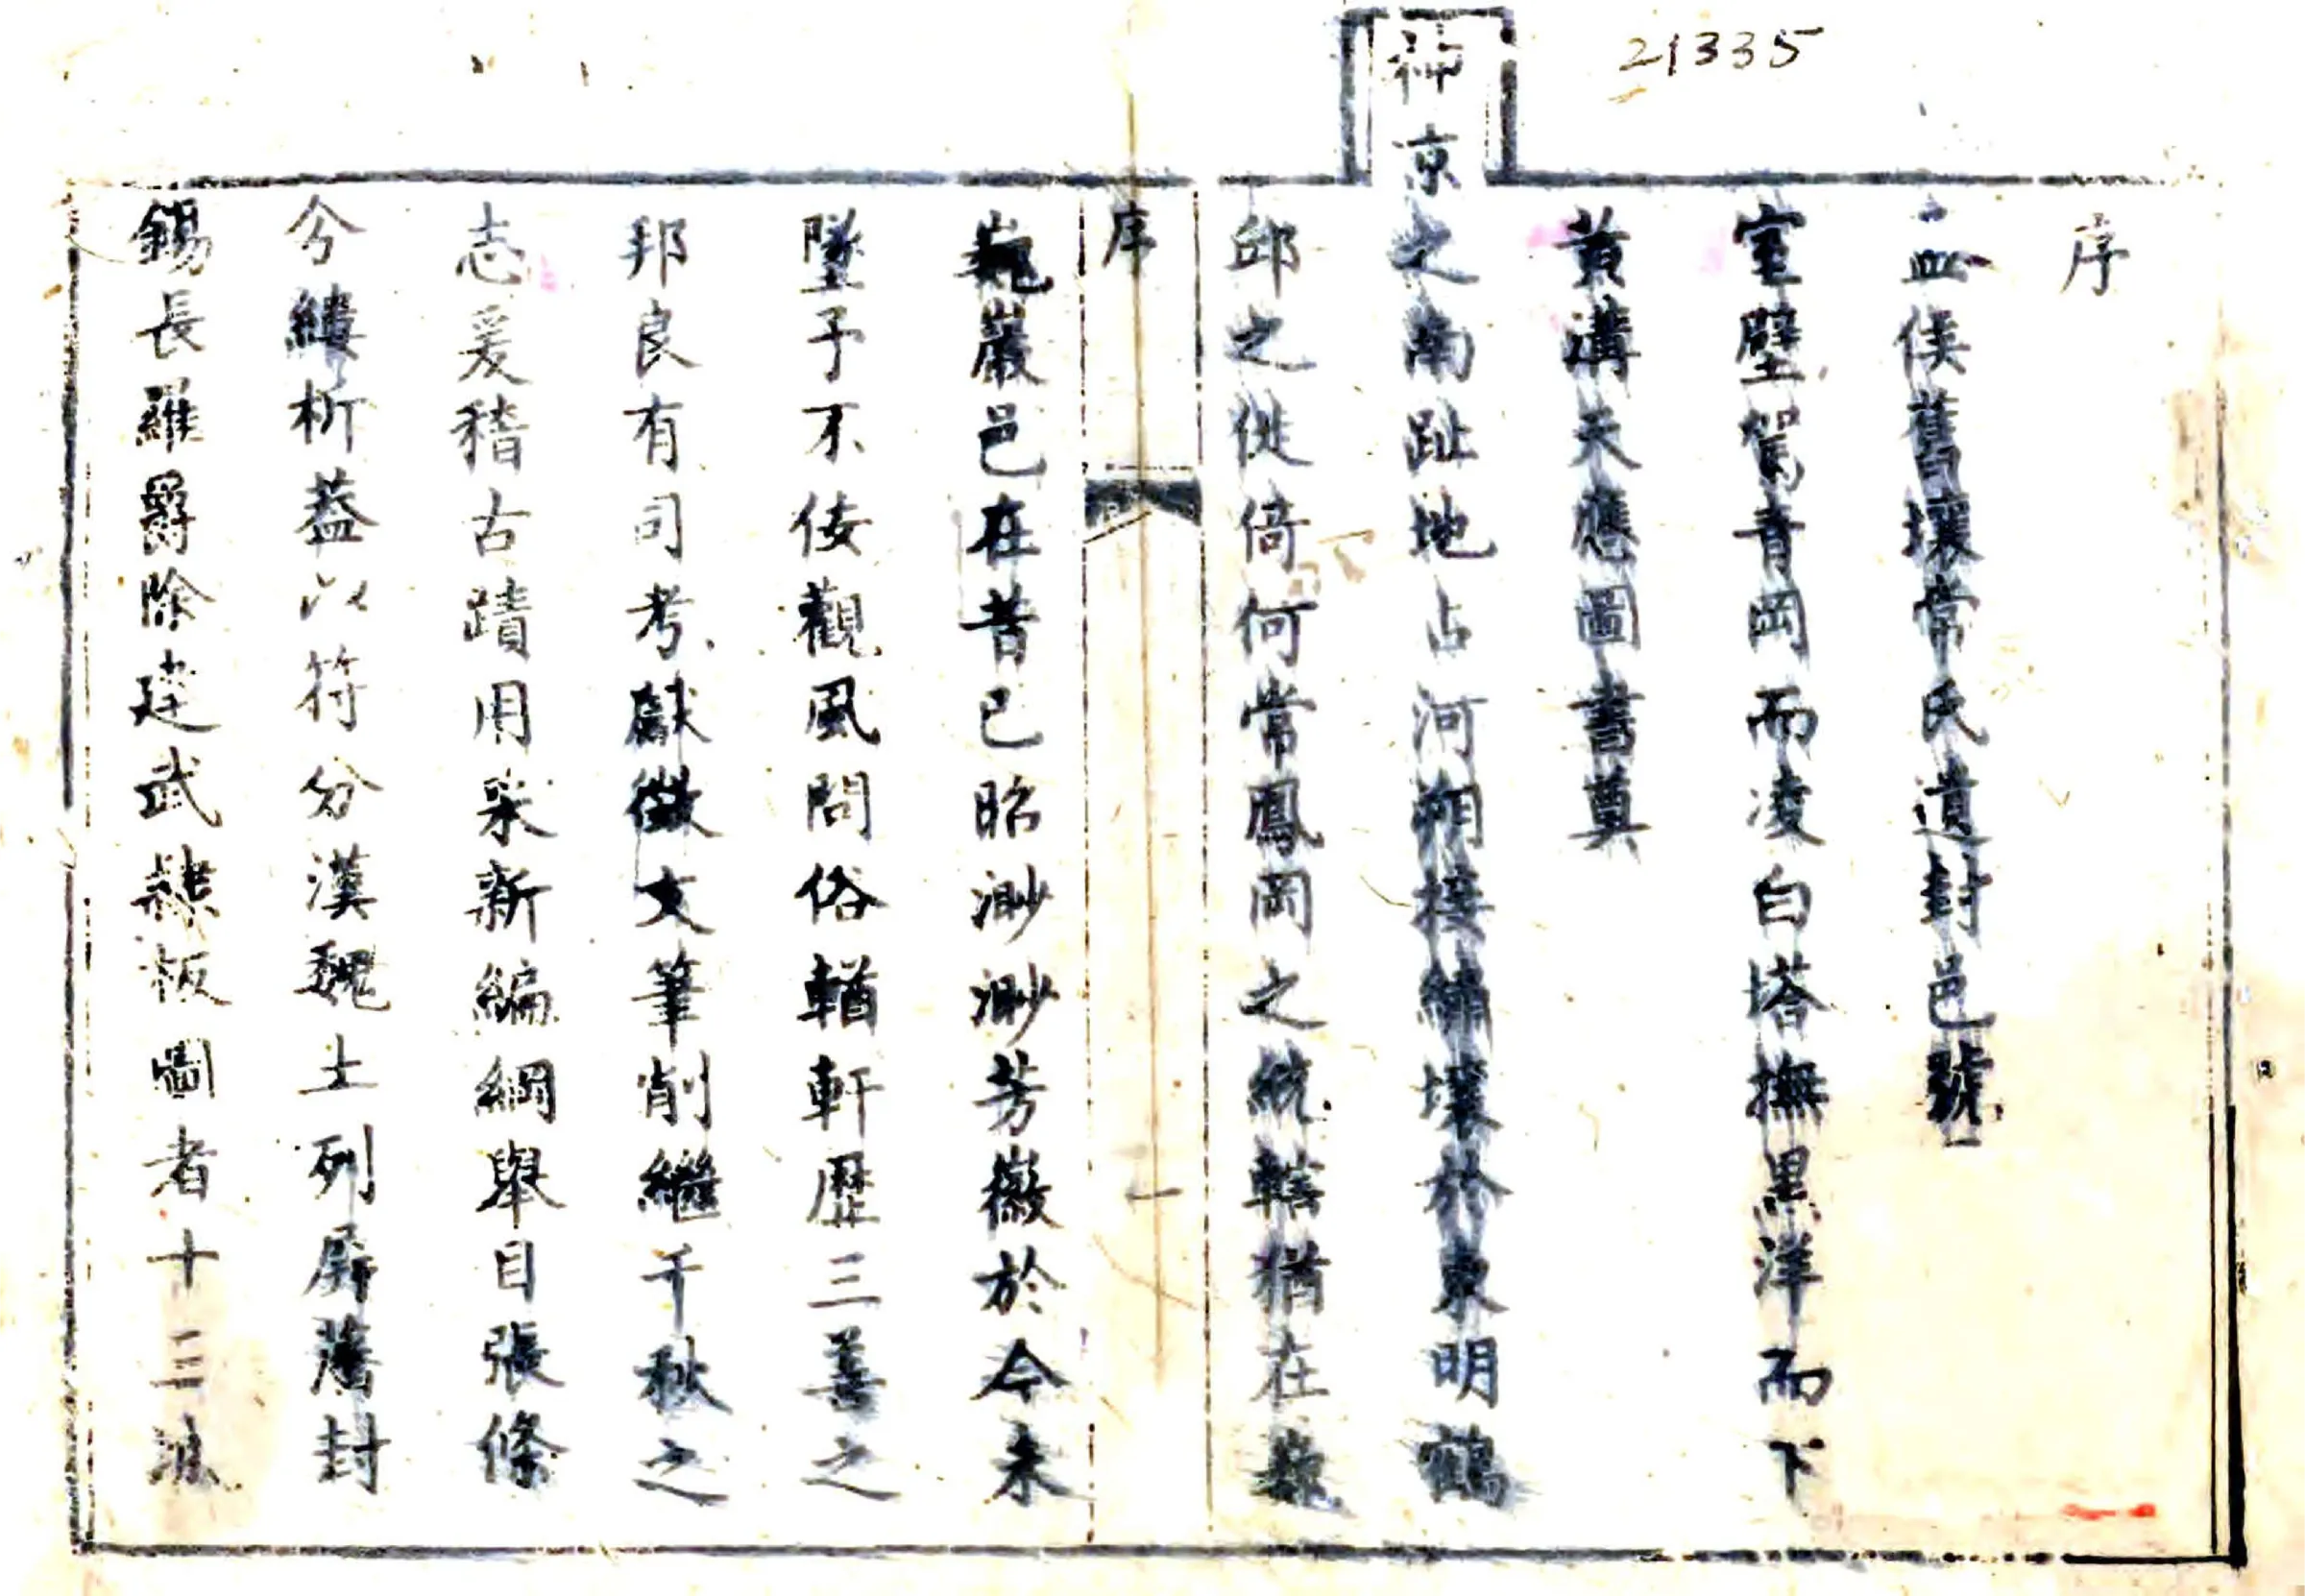 21335
序
孟侯舊壤常氏遺封邑號
室壁駕青岡而凌白塔撫黑洋而下
黃溝天應圖書奠
神京之南趾地占河朔接繡壤於東明鶴
邱之徙倚何常鳳岡之統轄猶在巍
序
一
巍巖邑在昔已昭渺渺芳徽於今未
墜予不佞觀風問俗輶軒歷三善之
邦良有司考獻徵文筆削繼千秋之
志爰稽古蹟用采新編綱舉目張條
分縷析蓋以符分漢魏土列屏藩封
錫長羅爵除建武隸板圖者十三